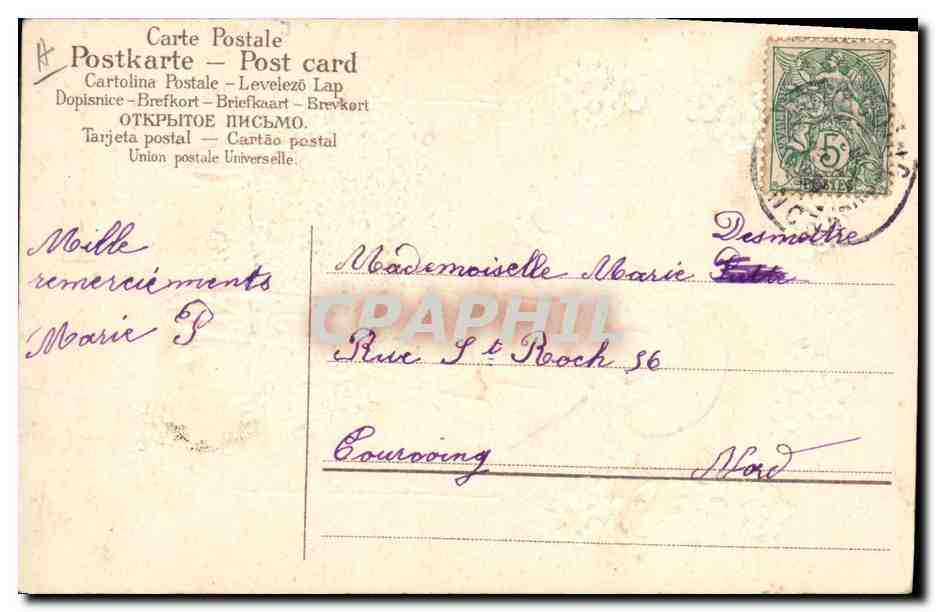 Carte Postale
Postkarte — Post card
Cartolina Postale – Levelezõ Lap
Dopisnice – Brefkort – Briefkaart – Brevkort
ОТКРЫТОЕ ПИСЬМО.
Tarjeta postal — Cartão postal
Union postale Universelle.
5c
POSTES
Mille
remerciements
Marie P
Desmettre
Mademoiselle Marie
Rue St Roch 56
Tourcoing Nord
CPAPHIL